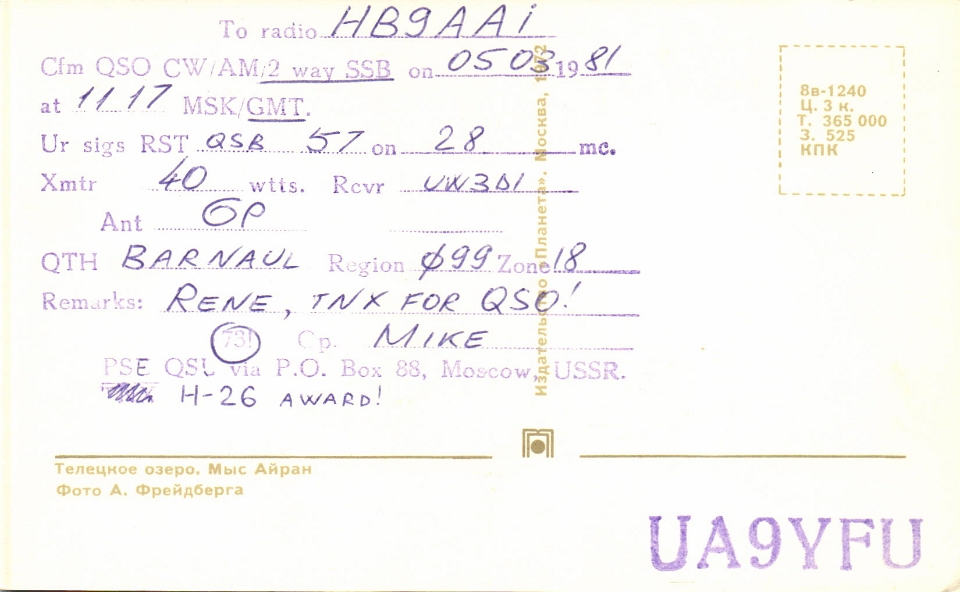 To radio HB9AAi
Cfm QSO CW/AM/2 way SSB on 05 03 1981
at 11.17 MSK/GMT.
Ur sigs RST QSB 57 on 28 mc.
Xmtr 40 wtts. Rcvr UW3DI
Ant GP
QTH BARNAUL Region Ø99 Zone 18
Remarks: RENE, TNX FOR QSO!
73! Op. MIKE
PSE QSL via P.O. Box 88, Moscow, USSR.
H-26 AWARD!
Издательство «Планета». Москва, 1972
8в-1240
Ц. 3 к.
Т. 365 000
З. 525
КПК
Телецкое озеро. Мыс Айран
Фото А. Фрейдберга
UA9YFU